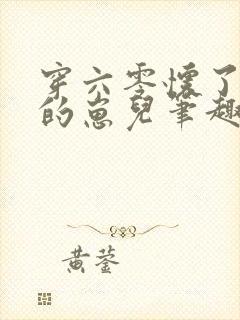 穿六零懷了
的崽兒筆趣
黃蓥